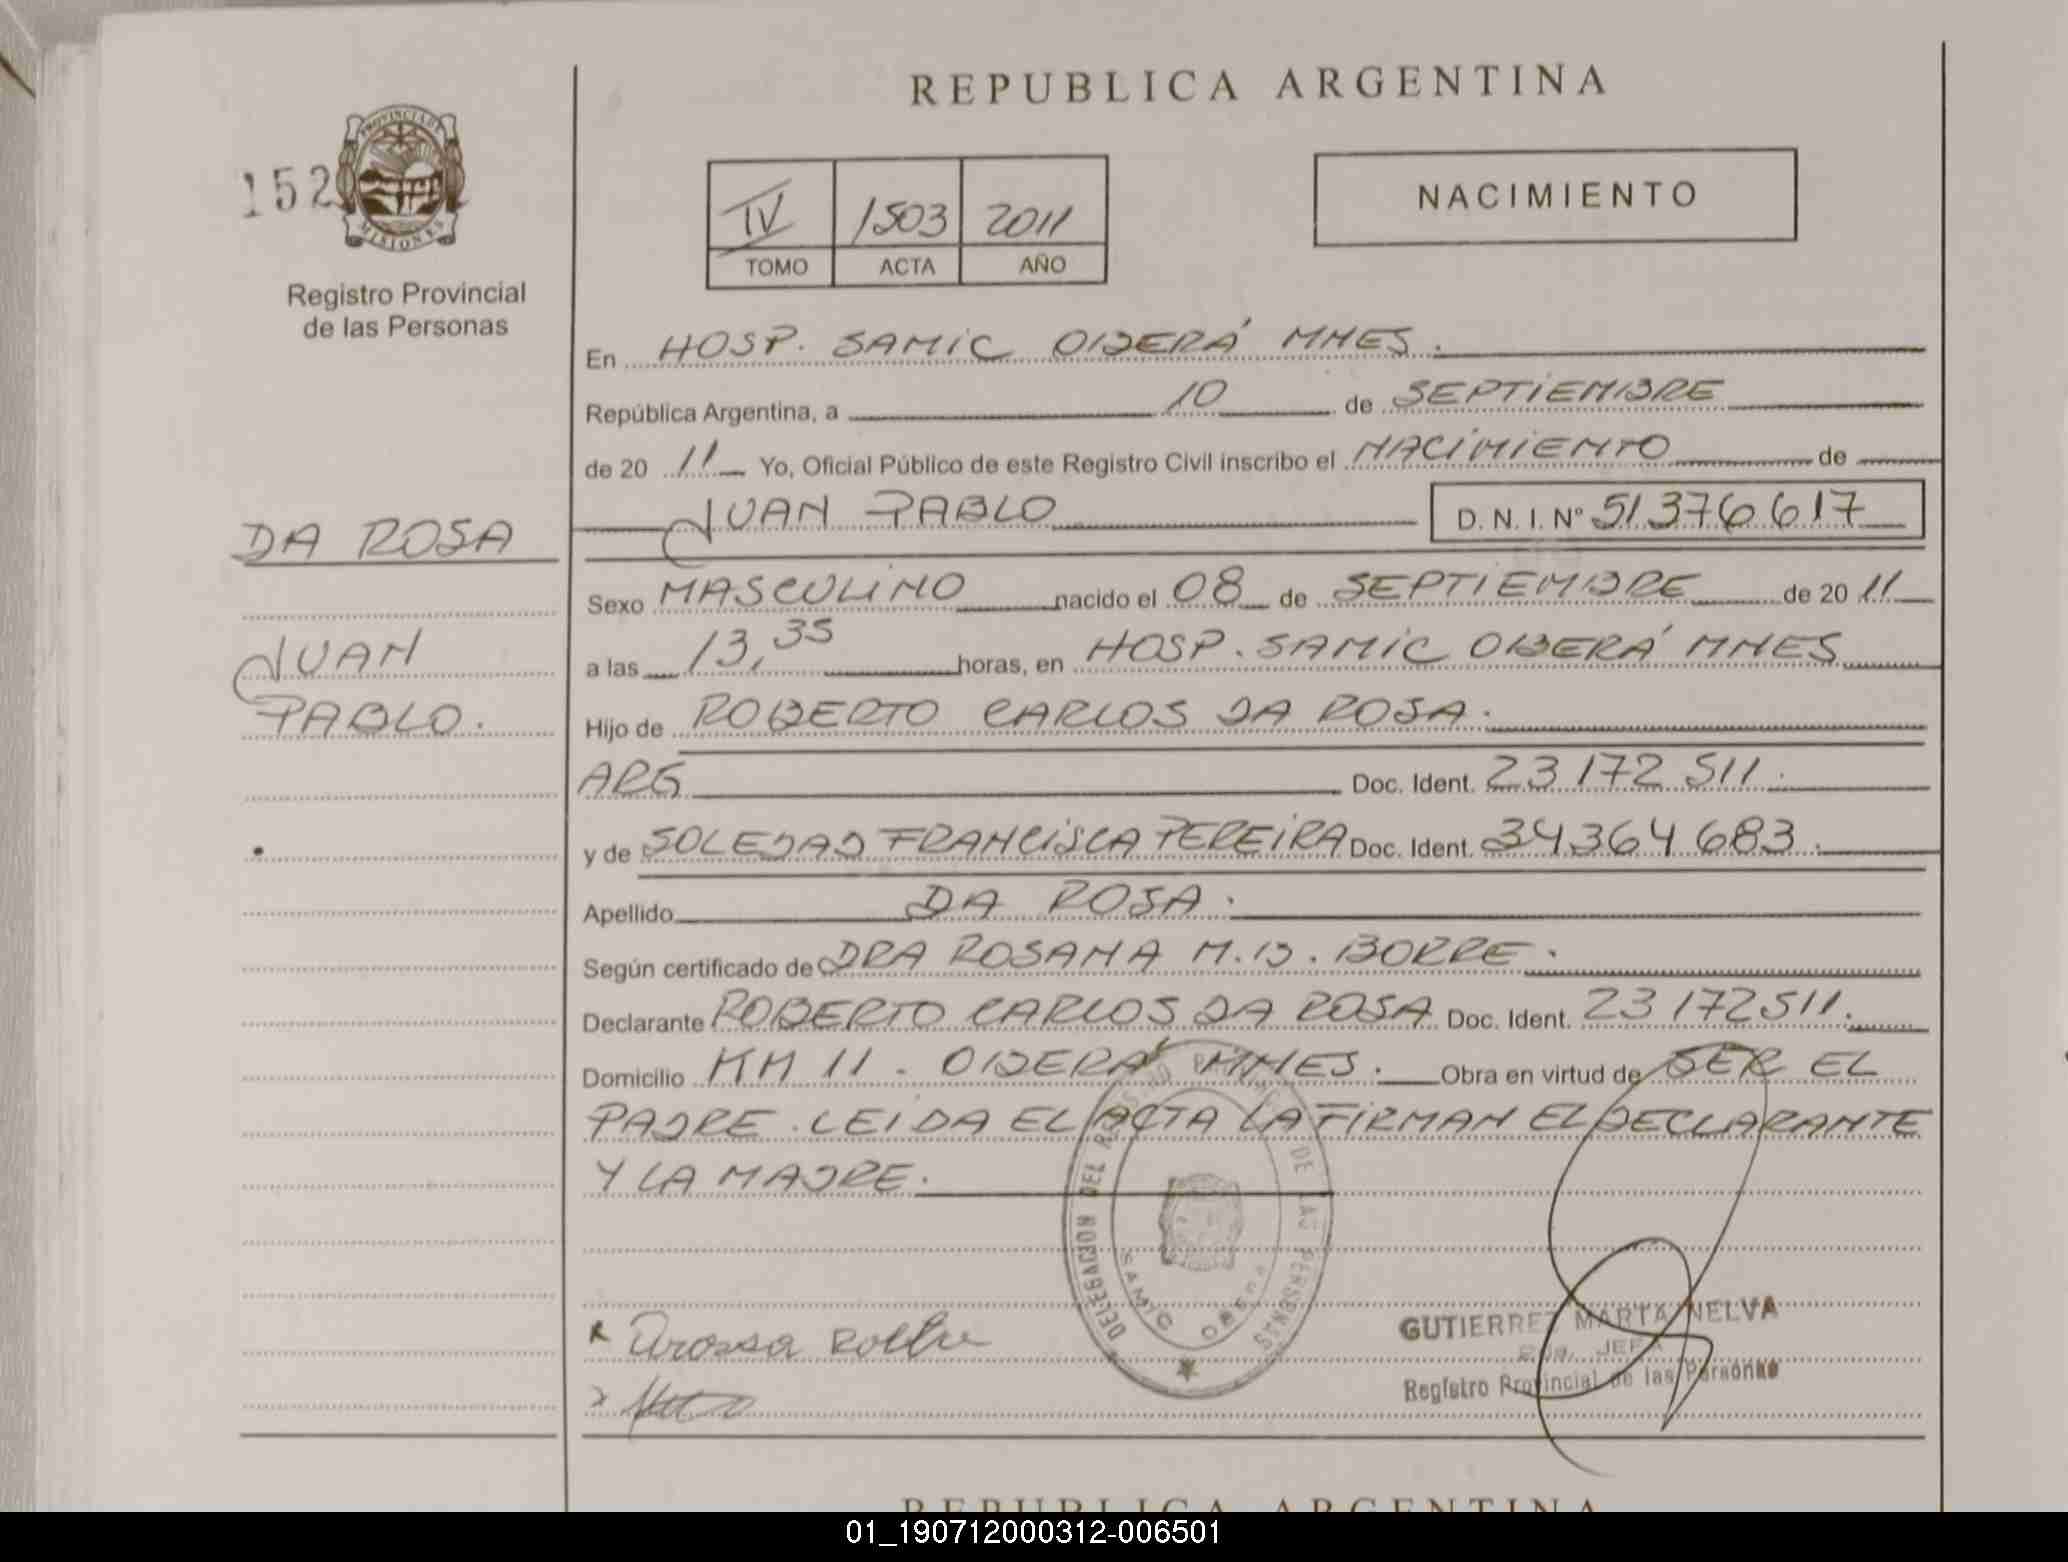 REPUBLICA ARGENTINA
152
PROVINCIA DE
MISIONES
Registro Provincial
de las Personas
IV 1503 2011
TOMO ACTA AÑO
NACIMIENTO
En HOSP. SAMIC OBERÁ MNES.
República Argentina, a 10 de SEPTIEMBRE
de 20 11 Yo, Oficial Público de este Registro Civil inscribo el NACIMIENTO de
JUAN PABLO D. N. I. Nº 51376617
DA ROSA
JUAN
PABLO.
Sexo MASCULINO nacido el 08 de SEPTIEMBRE de 20 11
a las 13,35 horas, en HOSP. SAMIC OBERÁ MNES
Hijo de ROBERTO CARLOS DA ROSA.
ARG Doc. Ident. 23172511.
y de SOLEDAD FRANCISCA PEREIRA Doc. Ident. 34364683.
Apellido DA ROSA.
Según certificado de DRA ROSANA M.B. BORRE.
Declarante ROBERTO CARLOS DA ROSA Doc. Ident. 23172511.
Domicilio KM 11. OBERÁ MNES. Obra en virtud de SER EL
PADRE. LEIDA EL ACTA LA FIRMAN EL DECLARANTE
Y LA MADRE.
DELEGACION DEL REGISTRO PROVINCIAL DE LAS PERSONAS
SAMIC OBERA
GUTIERREZ MARTA NELVA
JEFA
Registro Provincial de las Personas
REPUBLICA ARGENTINA
01_190712000312-006501